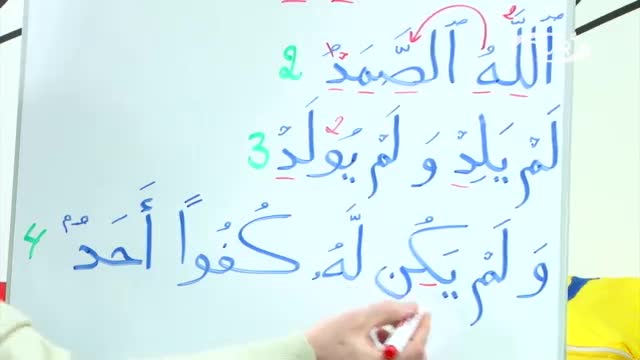 ٱللَّهُ ٱلصَّمَدُ 2
لَمْ يَلِدْ وَ لَمْ يُولَدْ 3
وَ لَمْ يَكُن لَّهُۥ كُفُوًا أَحَدٌ 4